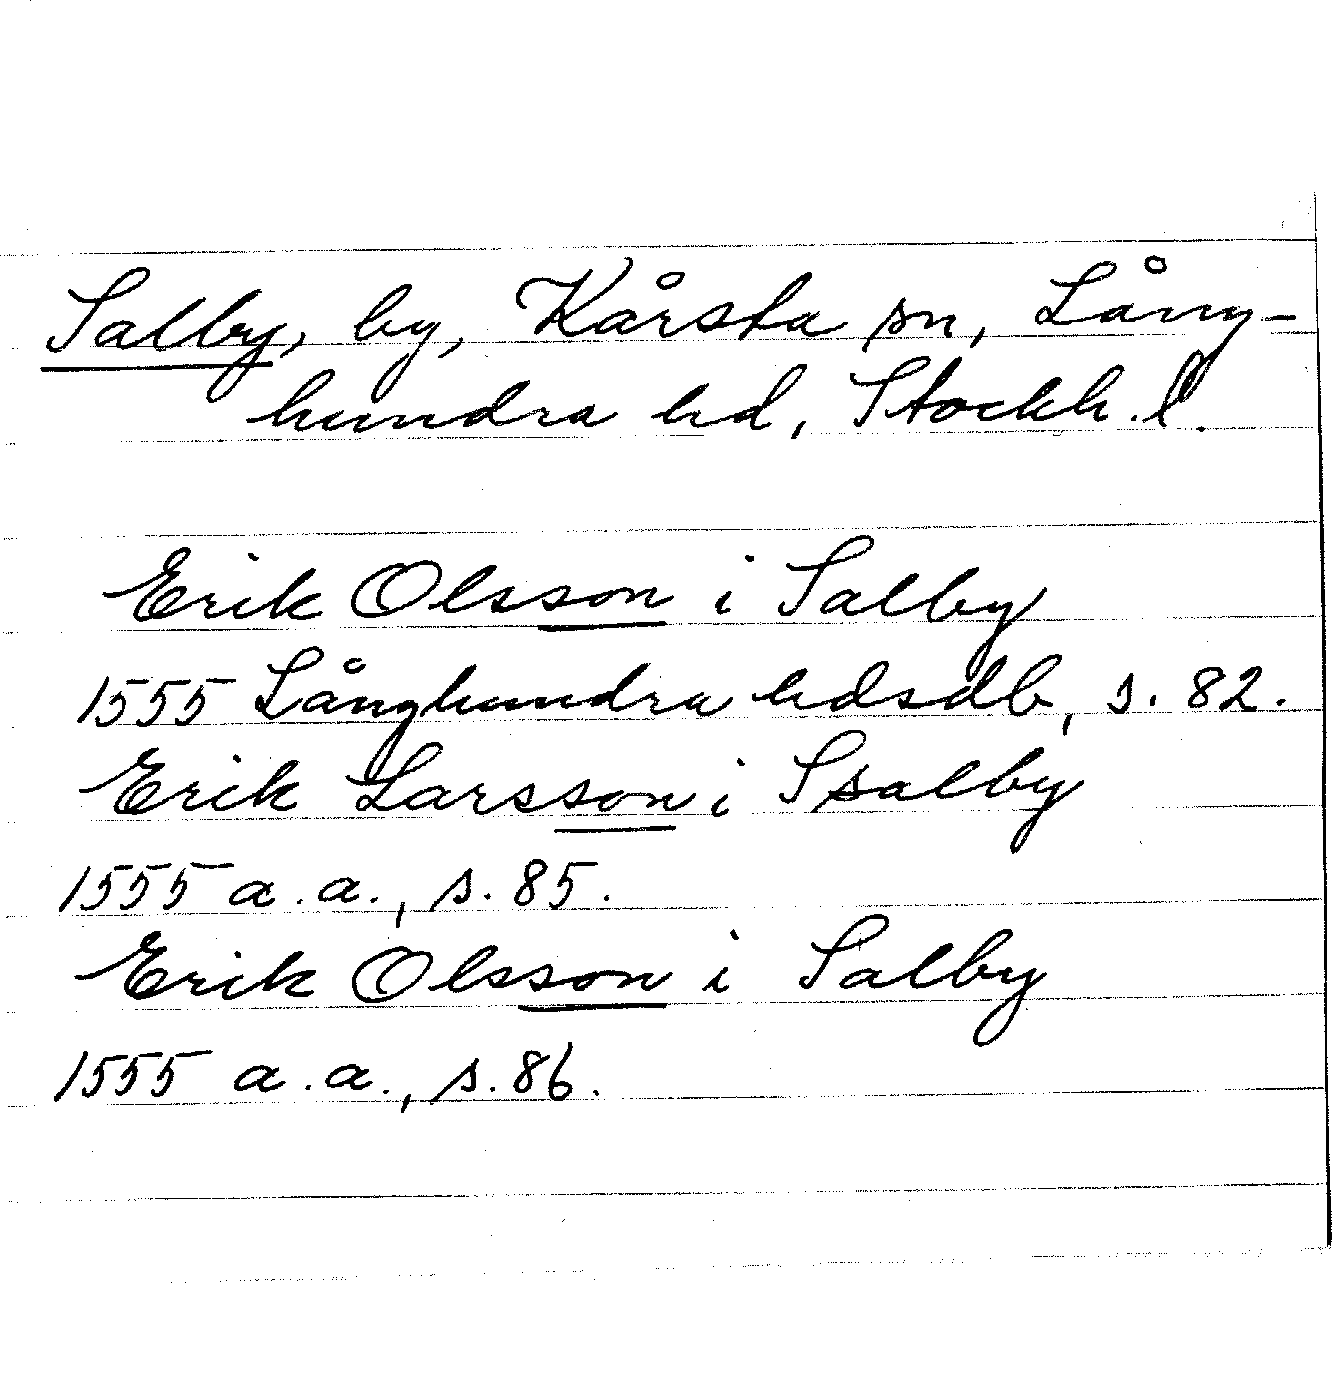 Salby, by, Kårsta sn, Lång-
hundra hd, Stockh. l.
Erik Olsson i Salby
1555 Långhundra hdsdb, s. 82.
Erik Larsson i Ssalby
1555 a.a., s. 85.
Erik Olsson i Salby
1555 a.a., s. 86.